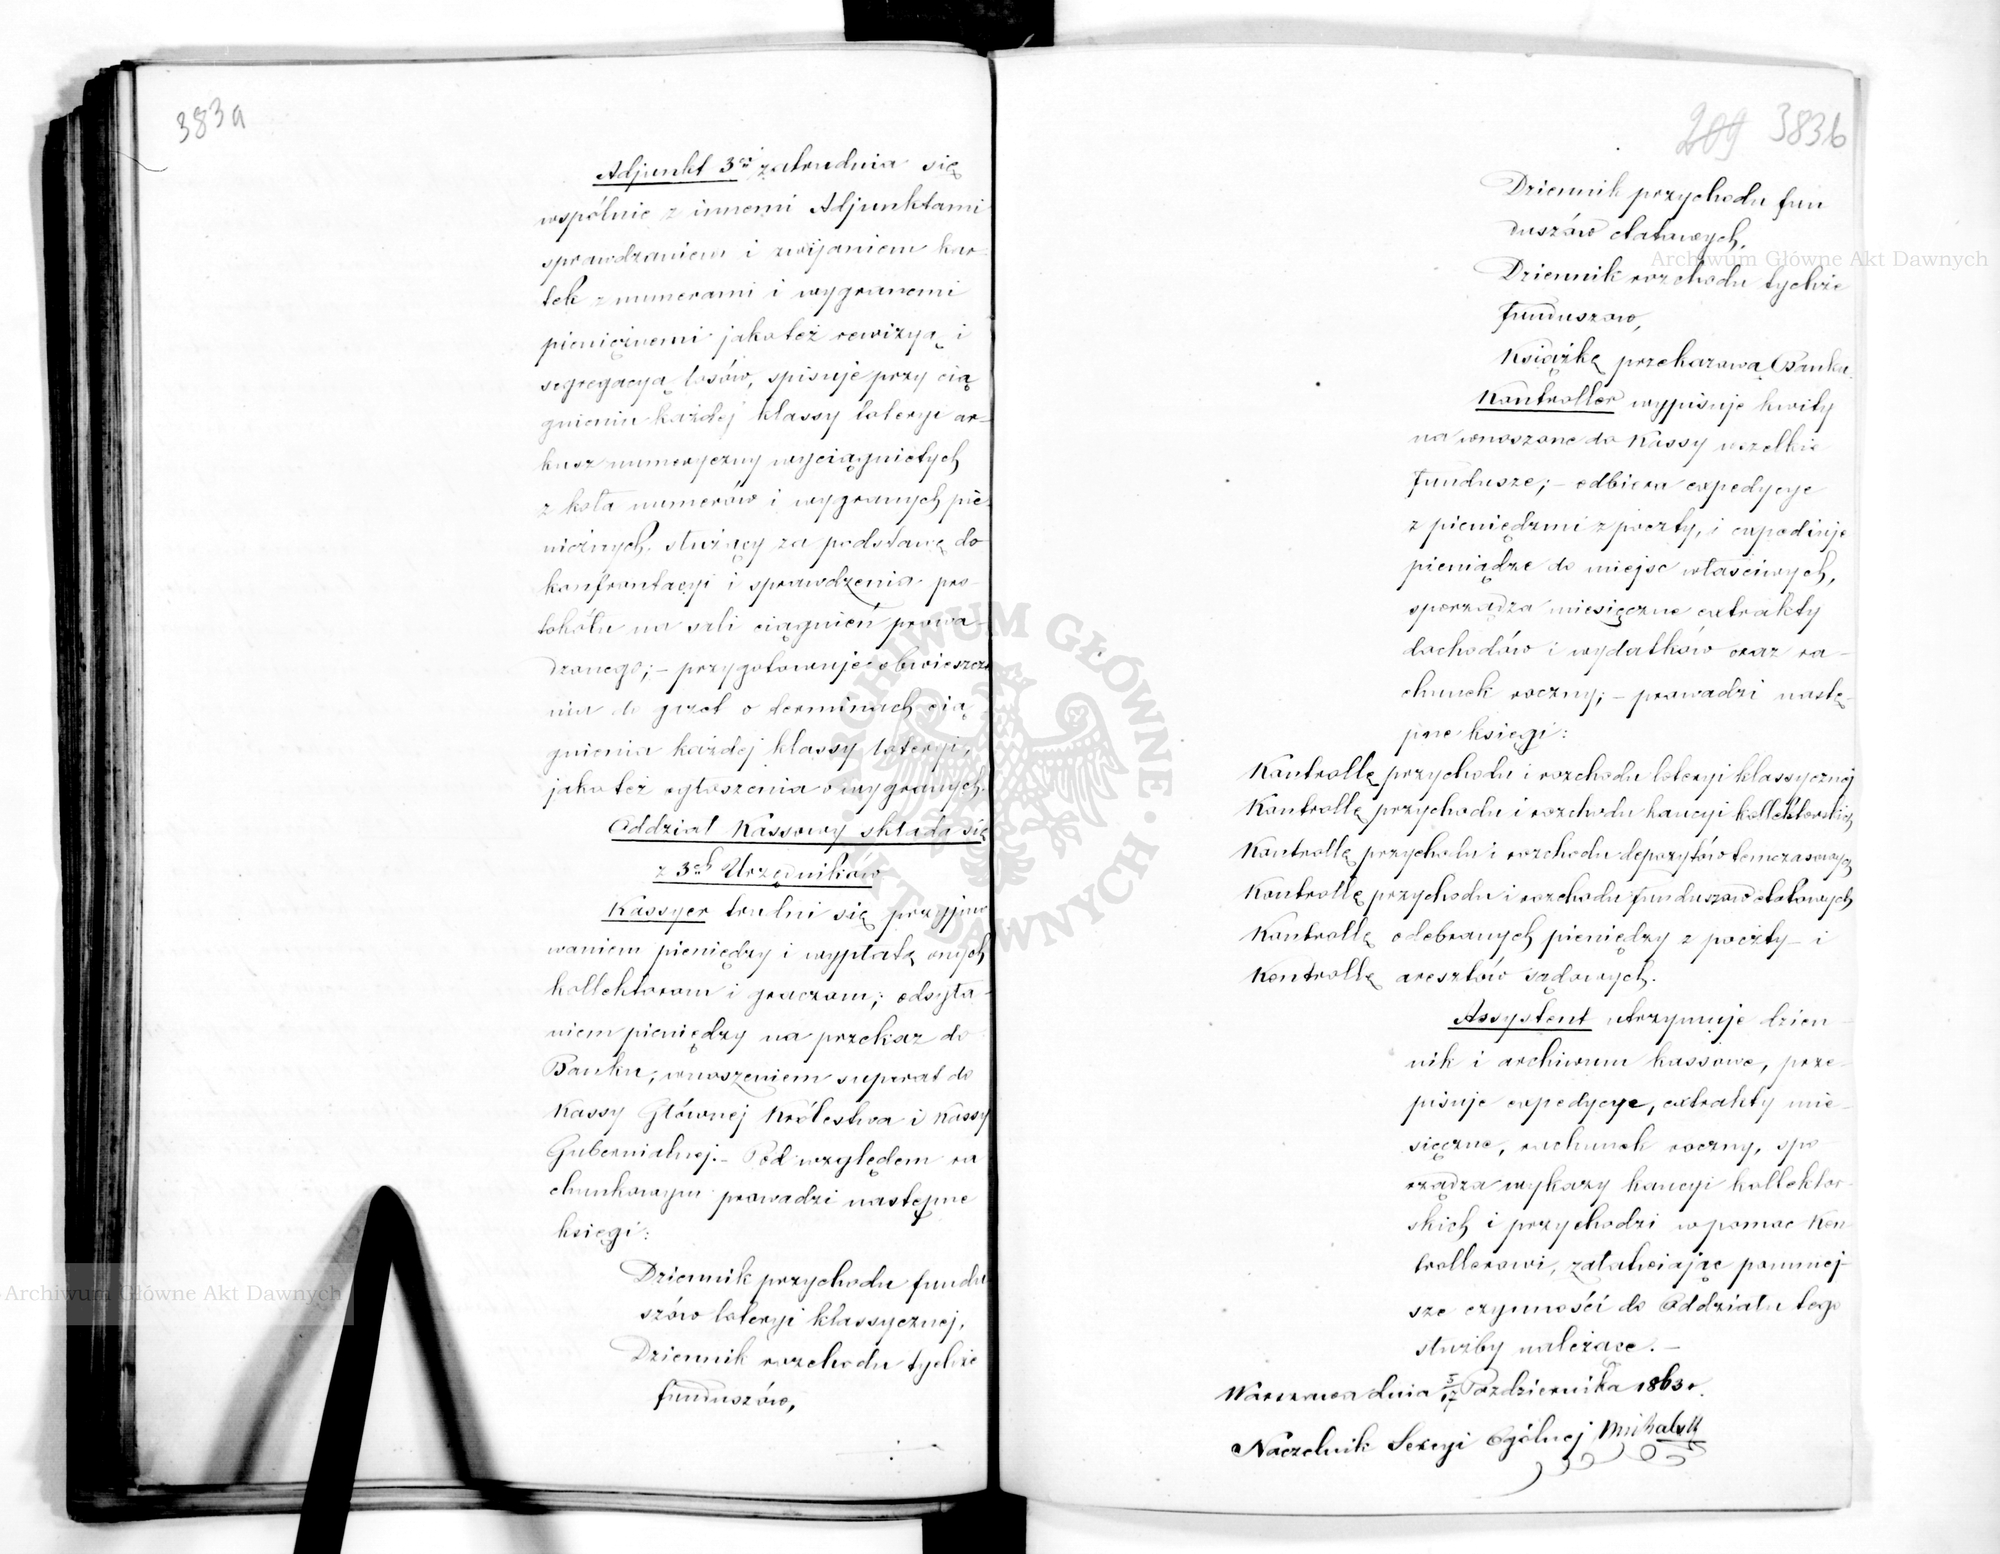 383a
Adjunkt 3ci zatrudnia się
wspólnie z innemi Adjunktami
sprawdzaniem i zwijaniem kar-
tek z numerami i wygranemi
pieniężnemi jakoteż rewizyą i
segregacyą losów, spisuje przy cią
gnieniu każdej klassy loteryi ar-
kusz numeryczny wyciągnietych
z koła numerów i wygranych pie-
nieżnych, służący za podstawę do
konfrontacyi i sprawdzenia pro-
tokółu na sali ciągnień prowa-
dzonego; – przygotowuje obwieszcze
nia do gazet o terminach cią
gnienia każdej klassy loteryi,
jako też ogłoszenia o wygranych.
Oddział Kassowy składa się
z 3ch Urzędników
Kassyer trudni się przyjmo
waniem pieniędzy i wypłatą onych
kollektorom i graczom; odsyła-
niem pieniędzy na przekaz do
Banku; wnoszeniem suparat do
Kassy Głównej Królestwa i Kassy
Gubernialnej. – Pod względem ra
chunkowym prowadzi następne
księgi:
Dziennik przychodu fundu
szów loteryi klassycznej,
Dziennik rozchodu tychże
funduszów,
209 383b
Dziennik przychodu fun
duszów etatowych,
Dziennik rozchodu tychże
funduszow,
Książkę przekazową Banku.
Kontroller wypisuje kwity
na wnoszone do Kassy wszelkie
fundusze; – odbiera expedycye
z pieniędzmi z poczty, i expedijuje
pieniądze do miejsc właściwych,
sporządza miesięczne extrakty
dochodów i wydatków oraz ra-
chunek roczny; – prowadzi nastę-
pne księgi:
Kontrollę przychodu i rozchodu loteryi klassycznej
Kontrollę przychodu i rozchodu kaucyi kollektorskich
Kontrollę przychodu i rozchodu depozytów temczasowych
Kontrollę przychodu i rozchodu funduszow etatowych
Kontrollę odebranych pieniędzy z poczty – i
Kontrollę aresztów sądowych.
Assystent utrzymuje dzien-
nik i archiwum kassowe, prze-
pisuje expedycye, extrakty mie-
sięczne, rachunek roczny, spo-
rządza wykazy kaucyi kollektor-
skich i przychodzi w pomoc Kon
trollerowi, załatwiając pomniej-
sze czynności do Oddziału tego
służby należące. –
Warszawa dnia 5/17 Października 1863 r.
Naczelnik Sekcyi Ogólnej
ARCHIWUM GŁÓWNE AKT DAWNYCH
Archiwum Główne Akt Dawnych
Archiwum Główne Akt Dawnych